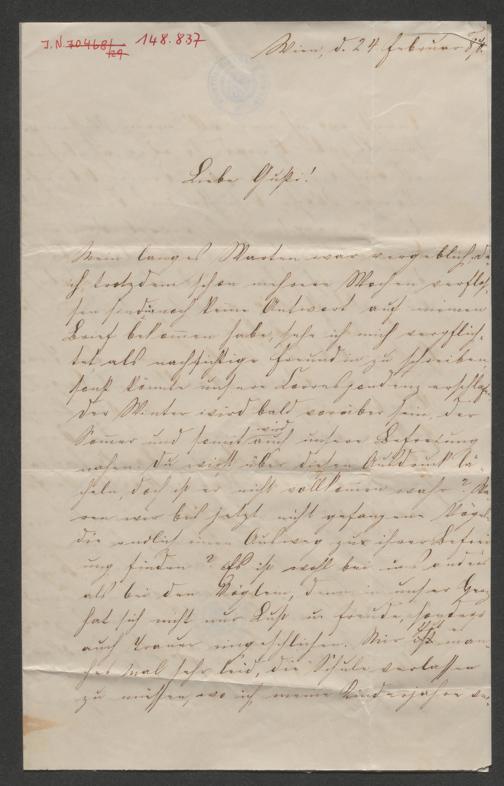 J.N. 70468/129 148.837
Wien, d. 24 Februar 87.
Liebe Gusti!
Mein langes Warten war vergeblich, da
ich trotzdem schon mehrere Wochen verflos-
sen sind, noch keine Antwort auf meinen
Brief bekommen habe, sehe ich mich verpflich-
tet als nachsichtige Freundin zu schreiben
sonst könnte unsere Correspondenz erschlaf-
Der Winter wird bald vorüber sein, der
Sommer und somit wird auch unsere Befreiung
nahen. Du wirst über diesen Ausdruck lä-
cheln, doch ist er nicht vollkommen wahr? Wa
ren wir bis jetzt nicht gefangene Vögel
die endlich einen Ausweg zu ihrer Befrei
ung finden? Es ist wohl bei uns anders
als bei den Vöglein, denn in unser Herz
hat sich nicht nur Lust u Freude, sondern
auch Trauer eingeschlichen. Mir ist es man-
ches Mal sehr leid, die Schule verlassen
zu müssen, wo ich meine Kinderjahre ver-